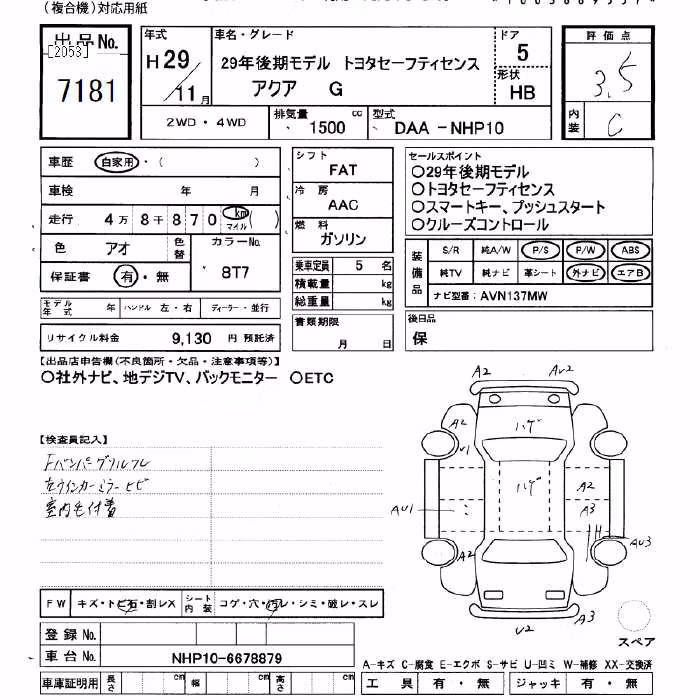 (複合機)対応用紙
出品No.
[2053]
7181
年式
H 29 / 11 月
車名・グレード
29年後期モデル トヨタセーフティセンス
アクア G
ドア
5
形状
HB
評価点
3.5
内装
C
2WD・4WD
排気量
1500 cc
型式
DAA -NHP10
車歴 自家用・( )
車検 年 月
走行 4万 8千 8 7 0 km マイル ( )
色 アオ
色替
カラーNo.
8T7
保証書 有・無
シフト
FAT
冷房
AAC
燃料
ガソリン
乗車定員 5 名
積載量 kg
総重量 kg
書類期限
月 日
セールスポイント
○29年後期モデル
○トヨタセーフティセンス
○スマートキー、プッシュスタート
○クルーズコントロール
装備品
S/R 純A/W P/S P/W ABS
純TV 純ナビ 革シート 外ナビ エアB
ナビ型番: AVN137MW
後日品
保
モデル年式 年 ハンドル 左・右 ディーラー・並行
リサイクル料金 9,130 円 預託済
【出品店申告欄(不良箇所・欠品・注意事項等)】
○社外ナビ、地デジTV、バックモニター ○ETC
【検査員記入】
Fバンパーグリルフレ
左ウインカーミラーヒビ
室内毛付着
A2
AU2
A2
U1
ハゲ
ハゲ
A2
A3
AU1
AU3
A2
A3
U2
スペア
FW キズ・トビ石・割レX シート内装 コゲ・穴・汚レ・シミ・破レ・スレ
登録No.
車台No. NHP10-6678879
車庫証明用 長さ cm 幅 cm 高さ cm
A-キズ C-腐食 E-エクボ S-サビ U-凹ミ W-補修 XX-交換済
工具 有・無 ジャッキ 有・無